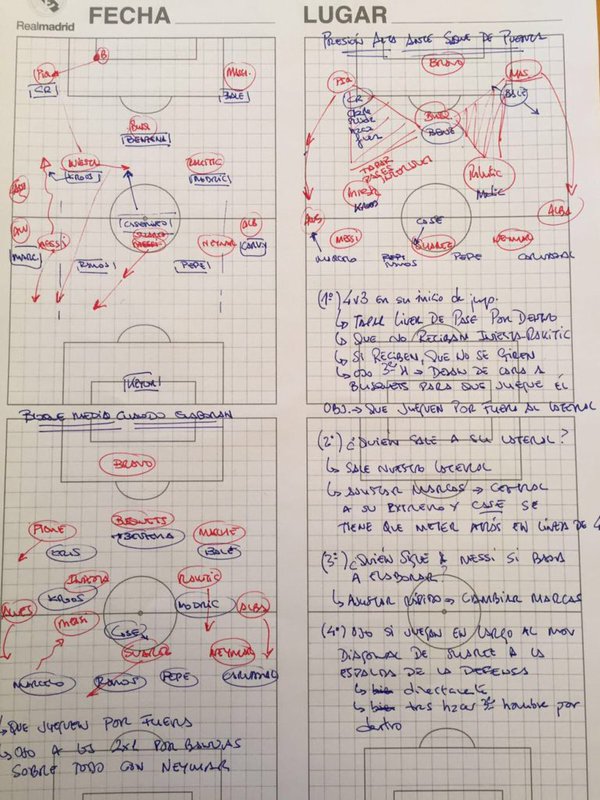 Realmadrid
FECHA
LUGAR
B
MASS.
CR
BALE
BUSQ
BENZEMA
INIESTA
RAKITIC
KROOS
MODRIC
CASEMIRO
SUAREZ
MESSI
NEYMAR
ALB
MARC.
CARV
RAMOS
PEPE
KEYLOR
BLOQUE MEDIO CUANDO ELABORAN
BRAVO
PIQUE
BUSQUETS
BENZEMA
CRIS
BALE
INIESTA
RAKITIC
KROOS
MODRIC
ALVES
ALBA
MESSI
CASE
SUAREZ
NEYMAR
MARCELO
RAMOS
PEPE
CARVAJAL
↳ QUE JUEGUEN POR FUERA
↳ OJO A LOS 2x1 POR BANDAS
SOBRE TODO CON NEYMAR
PRESIÓN ALTA ANTE SAQUE DE PUERTA
BRAVO
PIQ
MAS
CR
BALE
BUSQ
BENZE
TAPAR
PASES
INTERIORES
INIESTA
KROOS
Rakitic
Modric
ALVS
ALBA
MESSI
CASE
SUAREZ
NEYMAR
MARCELO
PEPE
RAMOS
PEPE
CARVAJAL
(1º) 4v3 en su inicio de jueg.
↳ TAPAR LINEA DE PASE POR DENTRO
↳ QUE NO RECIBAN INIESTA-RAKITIC
↳ SI RECIBEN, QUE NO SE GIREN
↳ OJO 3er H → DEJAN DE CARA A
BUSQUETS PARA QUE JUEGUE ÉL
OBJ. → QUE JUEGUEN POR FUERA AL LATERAL
(2º) ¿QUIÉN SALE A SU LATERAL?
↳ SALE NUESTRO LATERAL
↳ AJUSTAR MARCAS → CENTRAL
A SU EXTREMO Y CASE SE
TIENE QUE METER ATRÁS EN LÍNEA DE 4
(3º) ¿QUIÉN SIGUE A MESSI SI BAJA
A ELABORAR?
↳ AJUSTAR RÁPIDO → CAMBIAR MARCAS
(4º) OJO SI JUEGAN EN LARGO AL MOV
DIAGONAL DE SUAREZ A LA
ESPALDA DE LA DEFENSA
↳ bien directamente
↳ bien tras hzar 3er hombre por
dentro